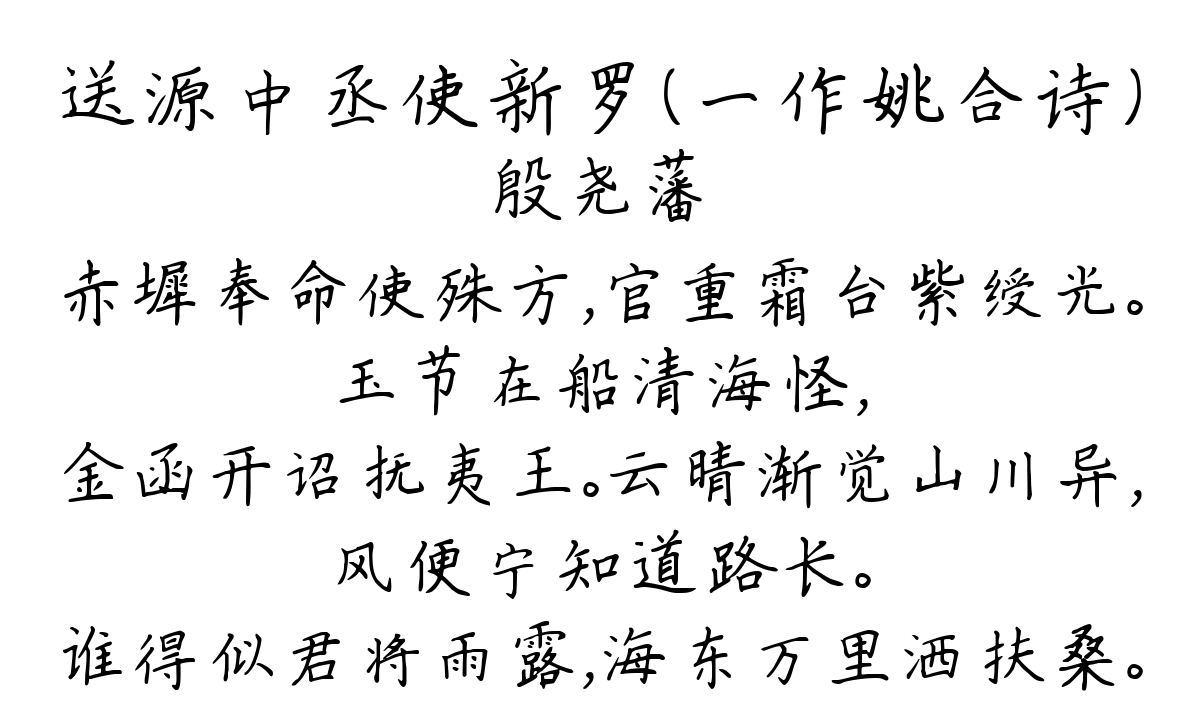 送源中丞使新罗(一作姚合诗)
殷尧藩
赤墀奉命使殊方,官重霜台紫绶光。
玉节在船清海怪,
金函开诏抚夷王。云晴渐觉山川异,
风便宁知道路长。
谁得似君将雨露,海东万里洒扶桑。